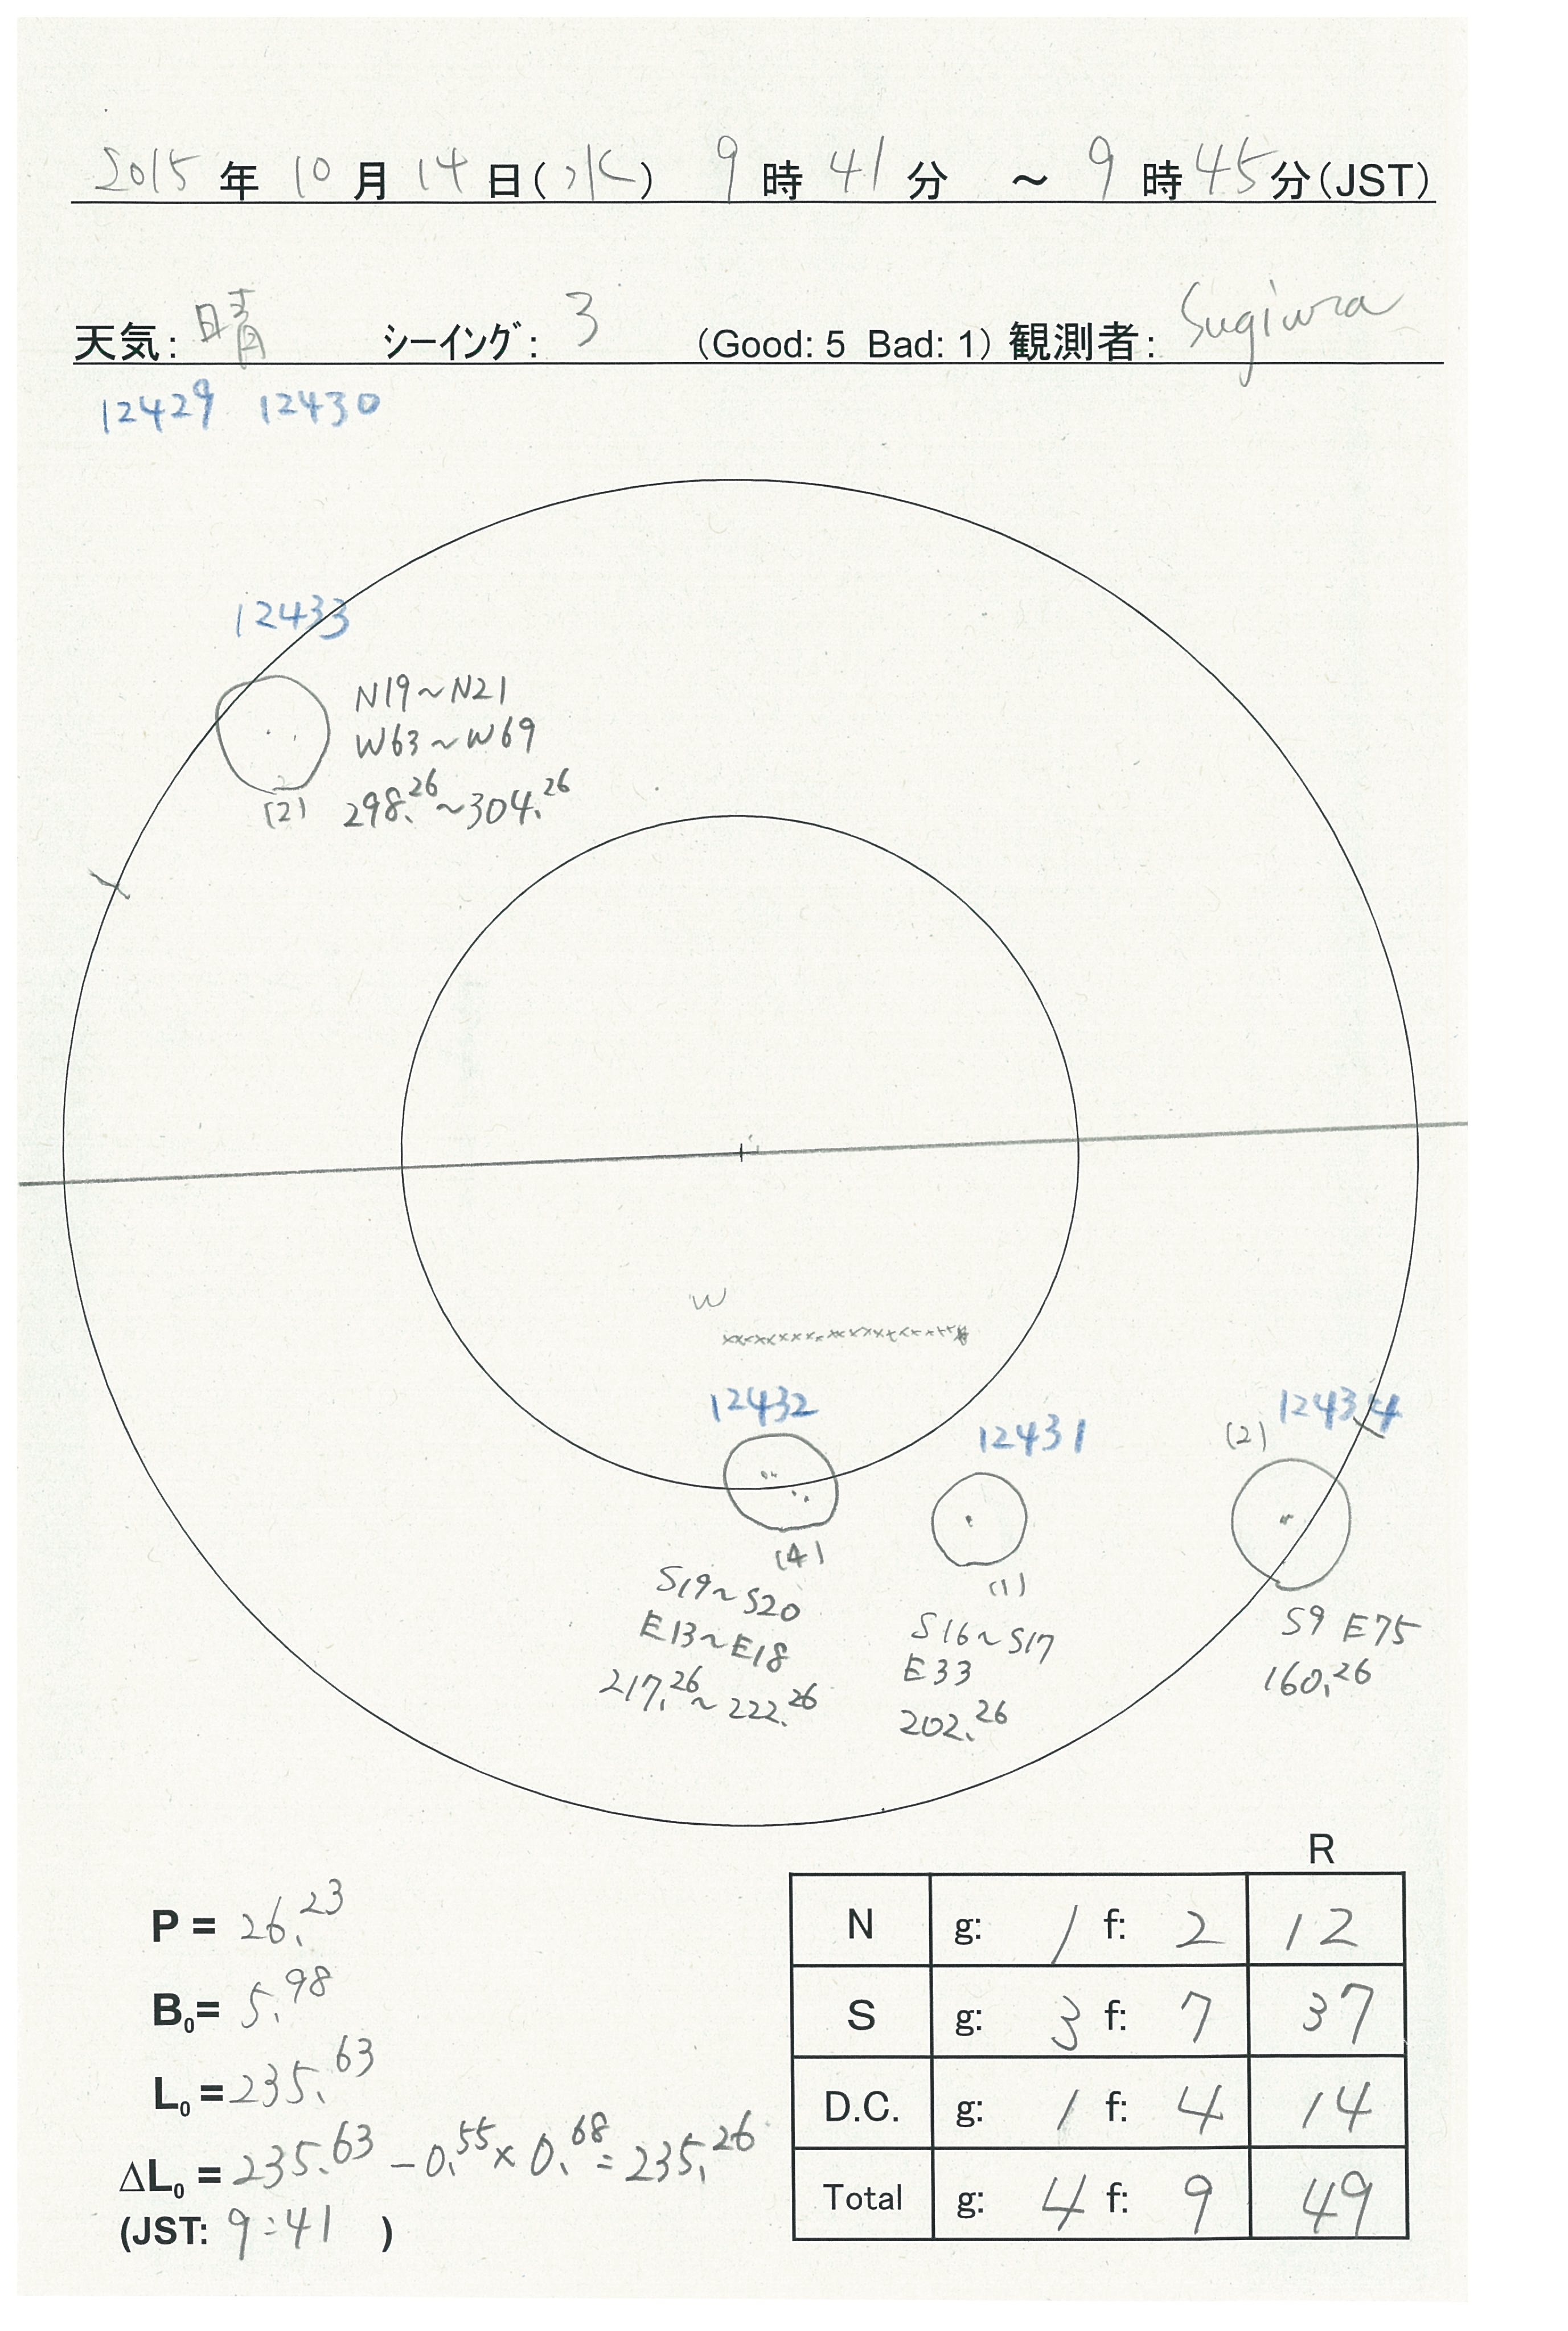 2015年10月14日(水) 9時41分 ～ 9時45分(JST)
天気: 晴 シーイング: 3 (Good: 5 Bad: 1) 観測者: Sugiura
12429 12430
12433
N19～N21
W63～W69
(2) 298.26～304.26
W
xxxxxxxxxxxxxxxxxxxx
12432
12431
(2) 12434
(4)
S19～S20
E13～E18
217.26～222.26
(1)
S16～S17
E33
202.26
S9 E75
160.26
R
P = 26.23
B0= 5.98
L0 = 235.63
ΔL0 = 235.63 - 0.55 × 0.68 = 235.26
(JST: 9:41 )
N g: 1 f: 2 12
S g: 3 f: 7 37
D.C. g: 1 f: 4 14
Total g: 4 f: 9 49